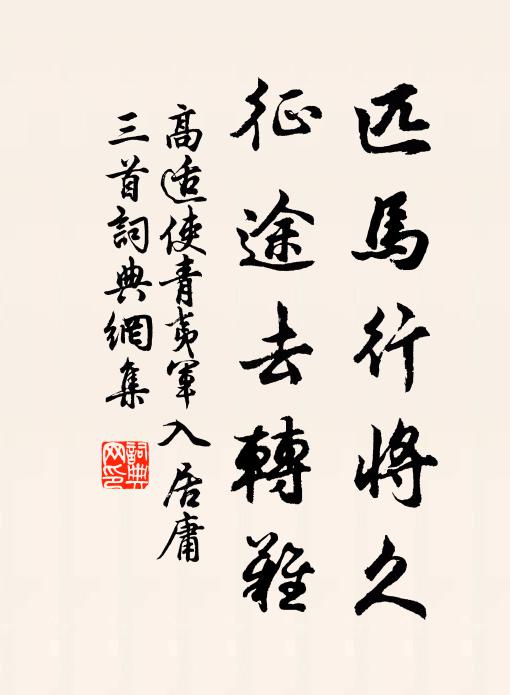 匹馬行將久
征途去轉難
高適使青夷軍入居庸
三首詞典網集
詞典網印